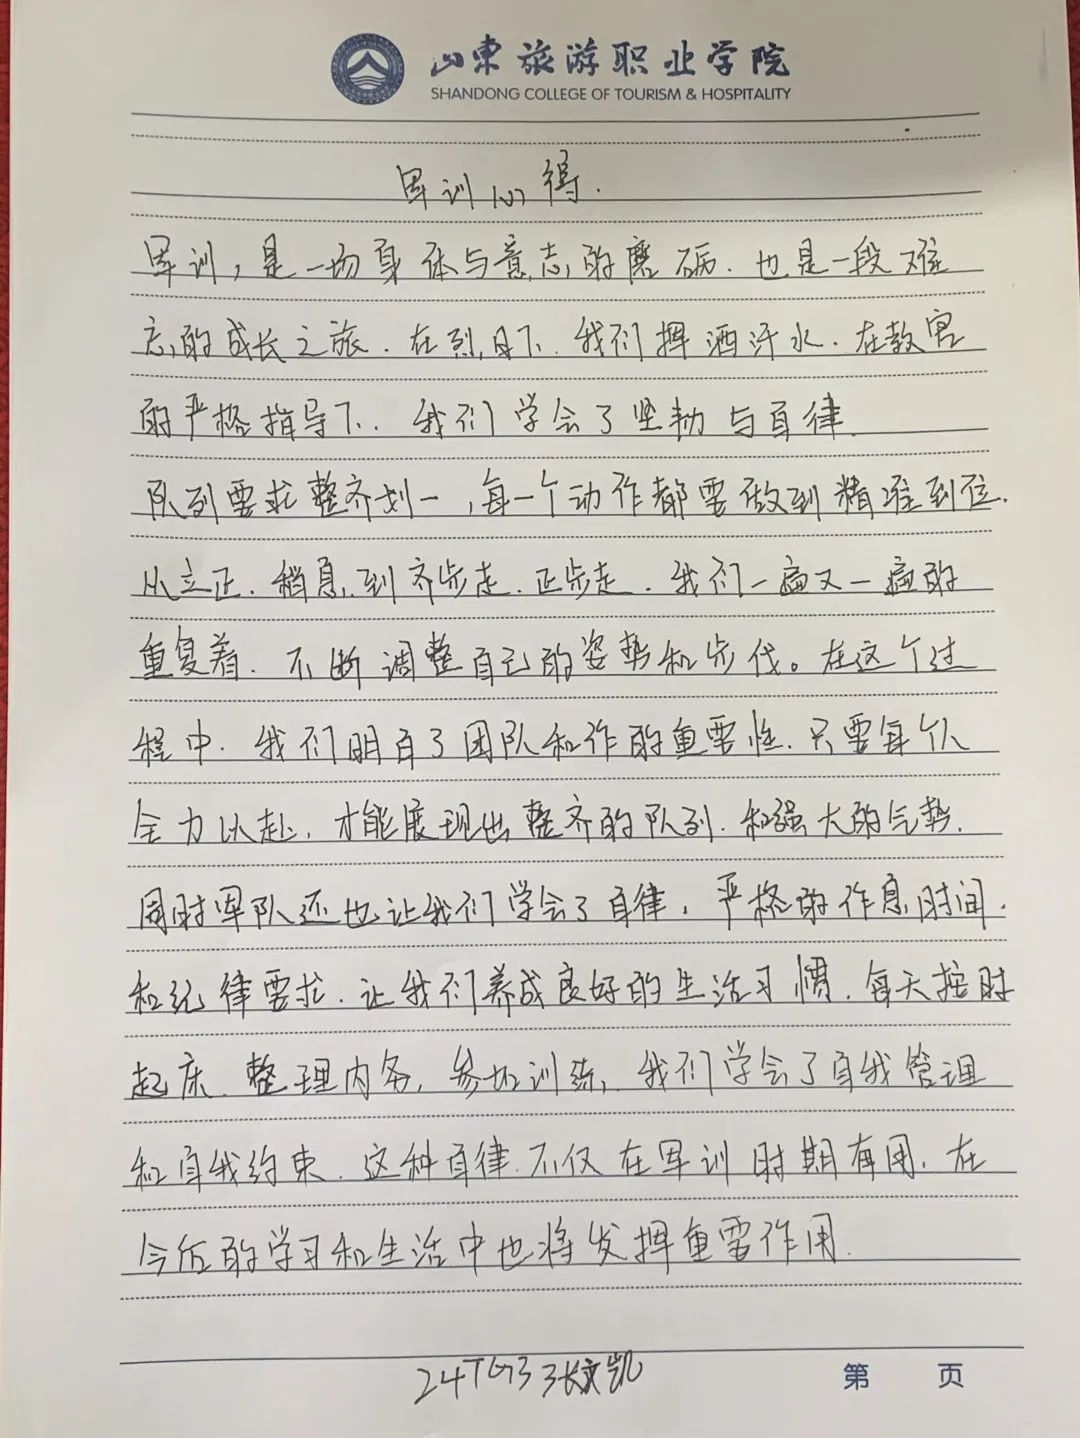 山东旅游职业学院
SHANDONG COLLEGE OF TOURISM & HOSPITALITY
军训心得.
军训,是一场身体与意志的磨砺.也是一段难
忘的成长之旅.在烈日下.我们挥洒汗水.在教官
的严格指导下.我们学会了坚韧与自律.
队列要求整齐划一,每一个动作都要做到精准到位.
从立正.稍息,到齐步走.正步走.我们一遍又一遍的
重复着.不断调整自己的姿势和步伐。在这个过
程中.我们明白了团队和作的重要性.只要每个人
全力以赴,才能展现出整齐的队列.和强大的气势.
同时军队还也让我们学会了自律,严格的作息时间.
和纪律要求.让我们养成良好的生活习惯.每天按时
起床.整理内务,参加训练,我们学会了自我管理
和自我约束.这种自律.不仅在军训时期有用.在
今后的学习和生活中也将发挥重要作用.
24TG3 张文凯
第 页